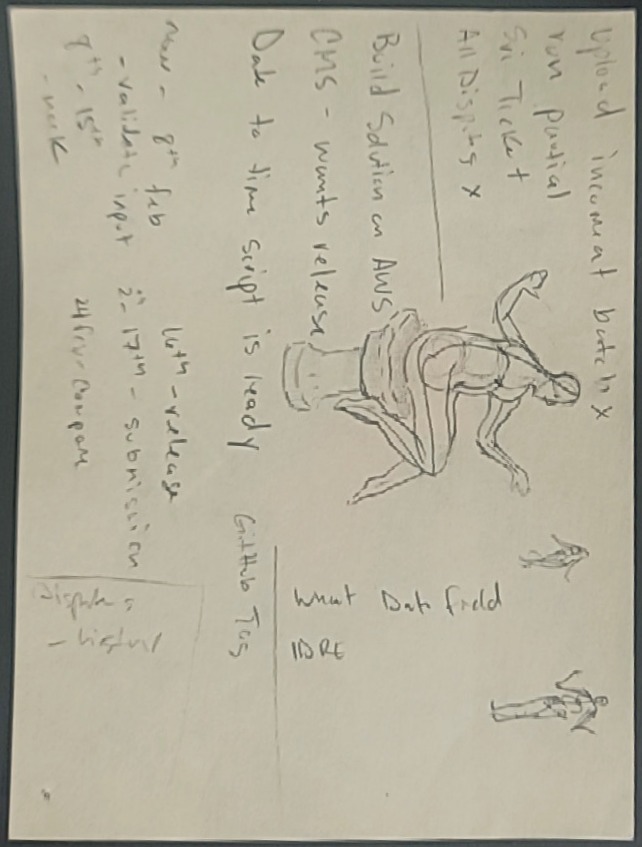 Upload incomeat batch x
run partial
Sri Ticket
All Disputes x
Build Solution on AWS
CMS - wants release
Date to time script is ready
now - 8th feb
- validate input
8th - 15th
- work
16th - release
17th - submission
24 fev - compare
GitHub Tag
What Date field
IDRE
Dispute